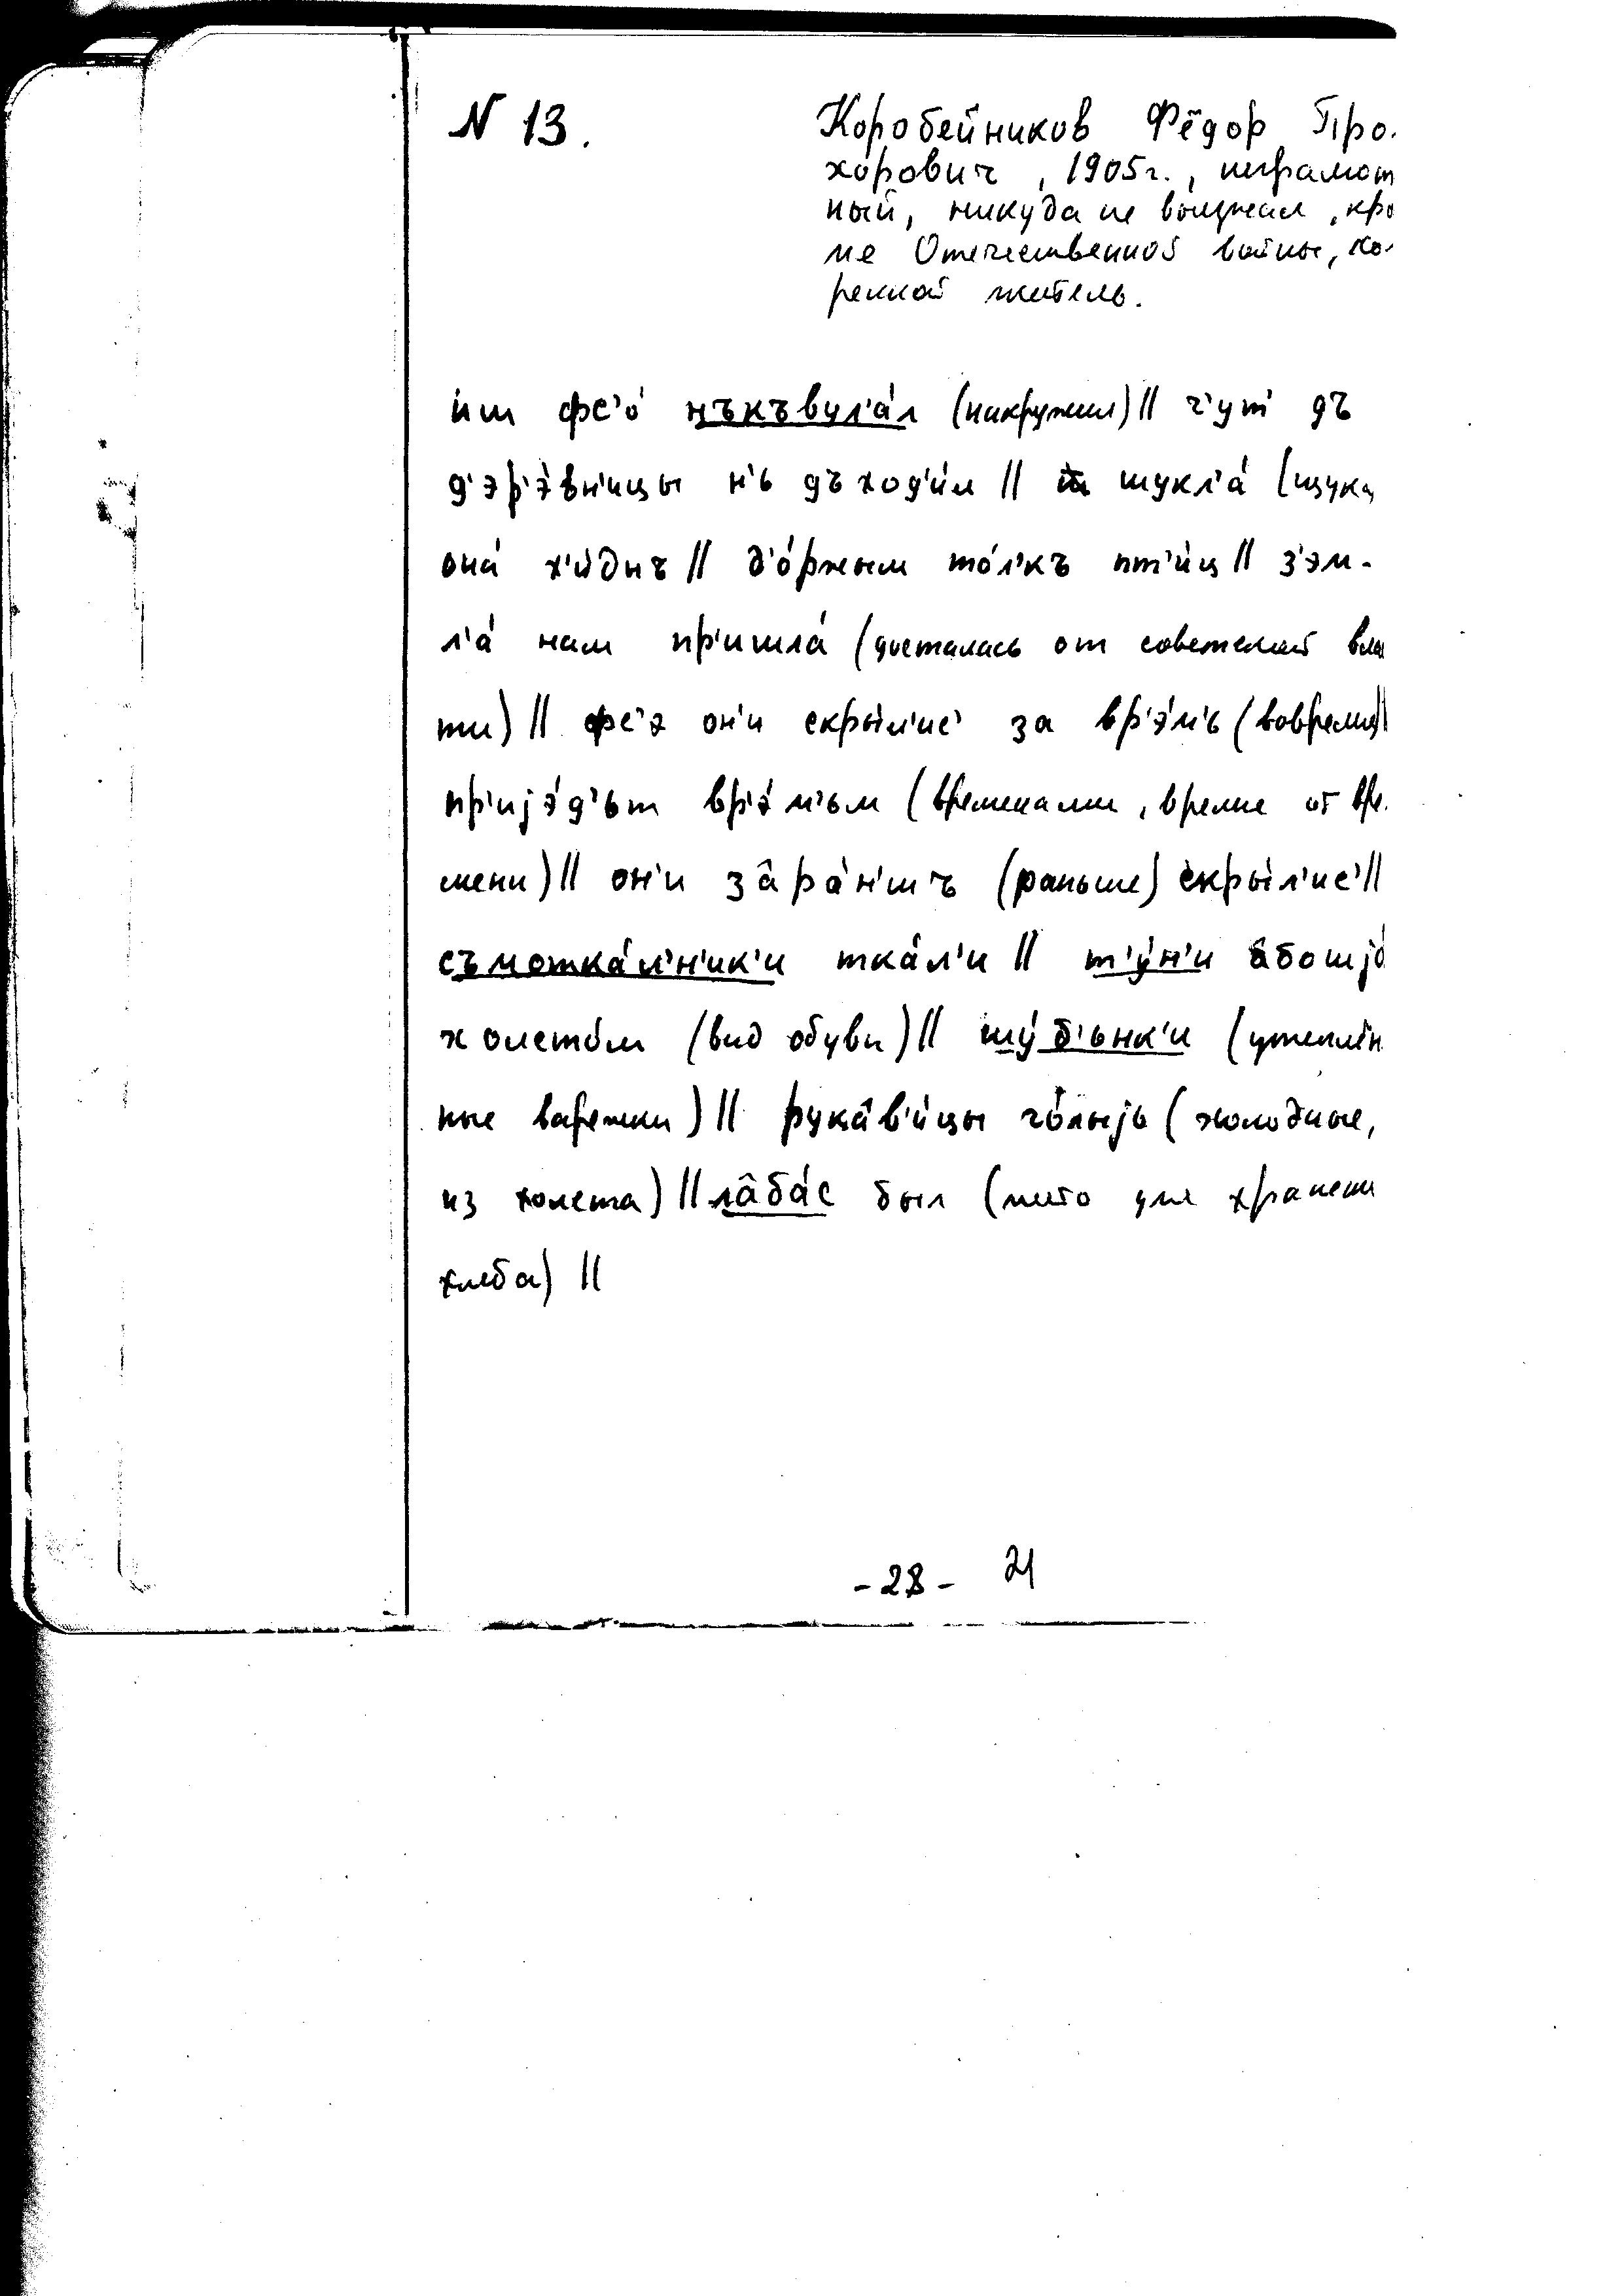 N 13.
Коробейников Фёдор Про-
хорович, 1905г., неграмот
ный, никуда не выезжал, кро
ме Отечественной войны, ко-
ренной житель.
иш фс'о́ нъкъвул'а́л (накружил) || ч'ут' дъ
д'эр'э́вн'ицы н'ь дъход'и́л || шукл'а́ (щука
она́ х'и́днъ || д'о́ржым то́л'къ пт'и́ц || з'эм-
л'а́ нам пр'ишла́ (досталась от советской влас
ти) || фс'э он'и скры́л'ис' за вр'э́м'ь (вовремя) ||
пр'ијэ́д'ьт вр'э́м'ьм (временами, время от вре-
мени) || он'и за̂ра́н'шъ (раньше) скры́л'ис' ||
съмотка́л'н'ик'и тка́л'и || т'у́н'и а̂бошјо́
холсто́м (вид обуви) || шу́б'ьнк'и (утеплён
ные варежки) || рука̂в'и́цы го́лыјь (холодные,
из холста) || ла̂ба́с был (место для хранени
хлеба) ||
-28- 21